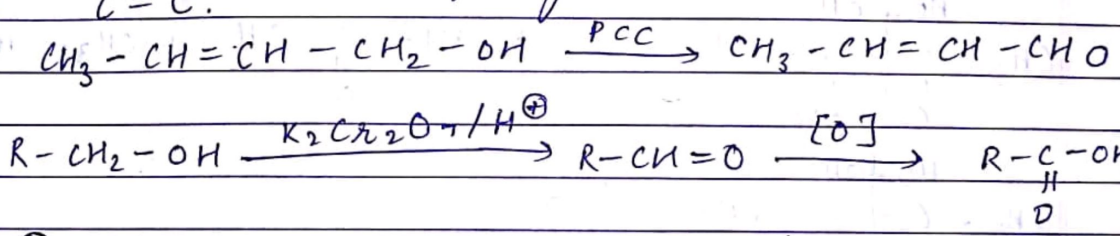 C - C.
CH₃ - CH = CH - CH₂ - OH —PCC→ CH₃ - CH = CH - CHO
R - CH₂ - OH —K₂Cr₂O₇/H⊕→ R - CH = O —[O]→ R - C - OH
||
O